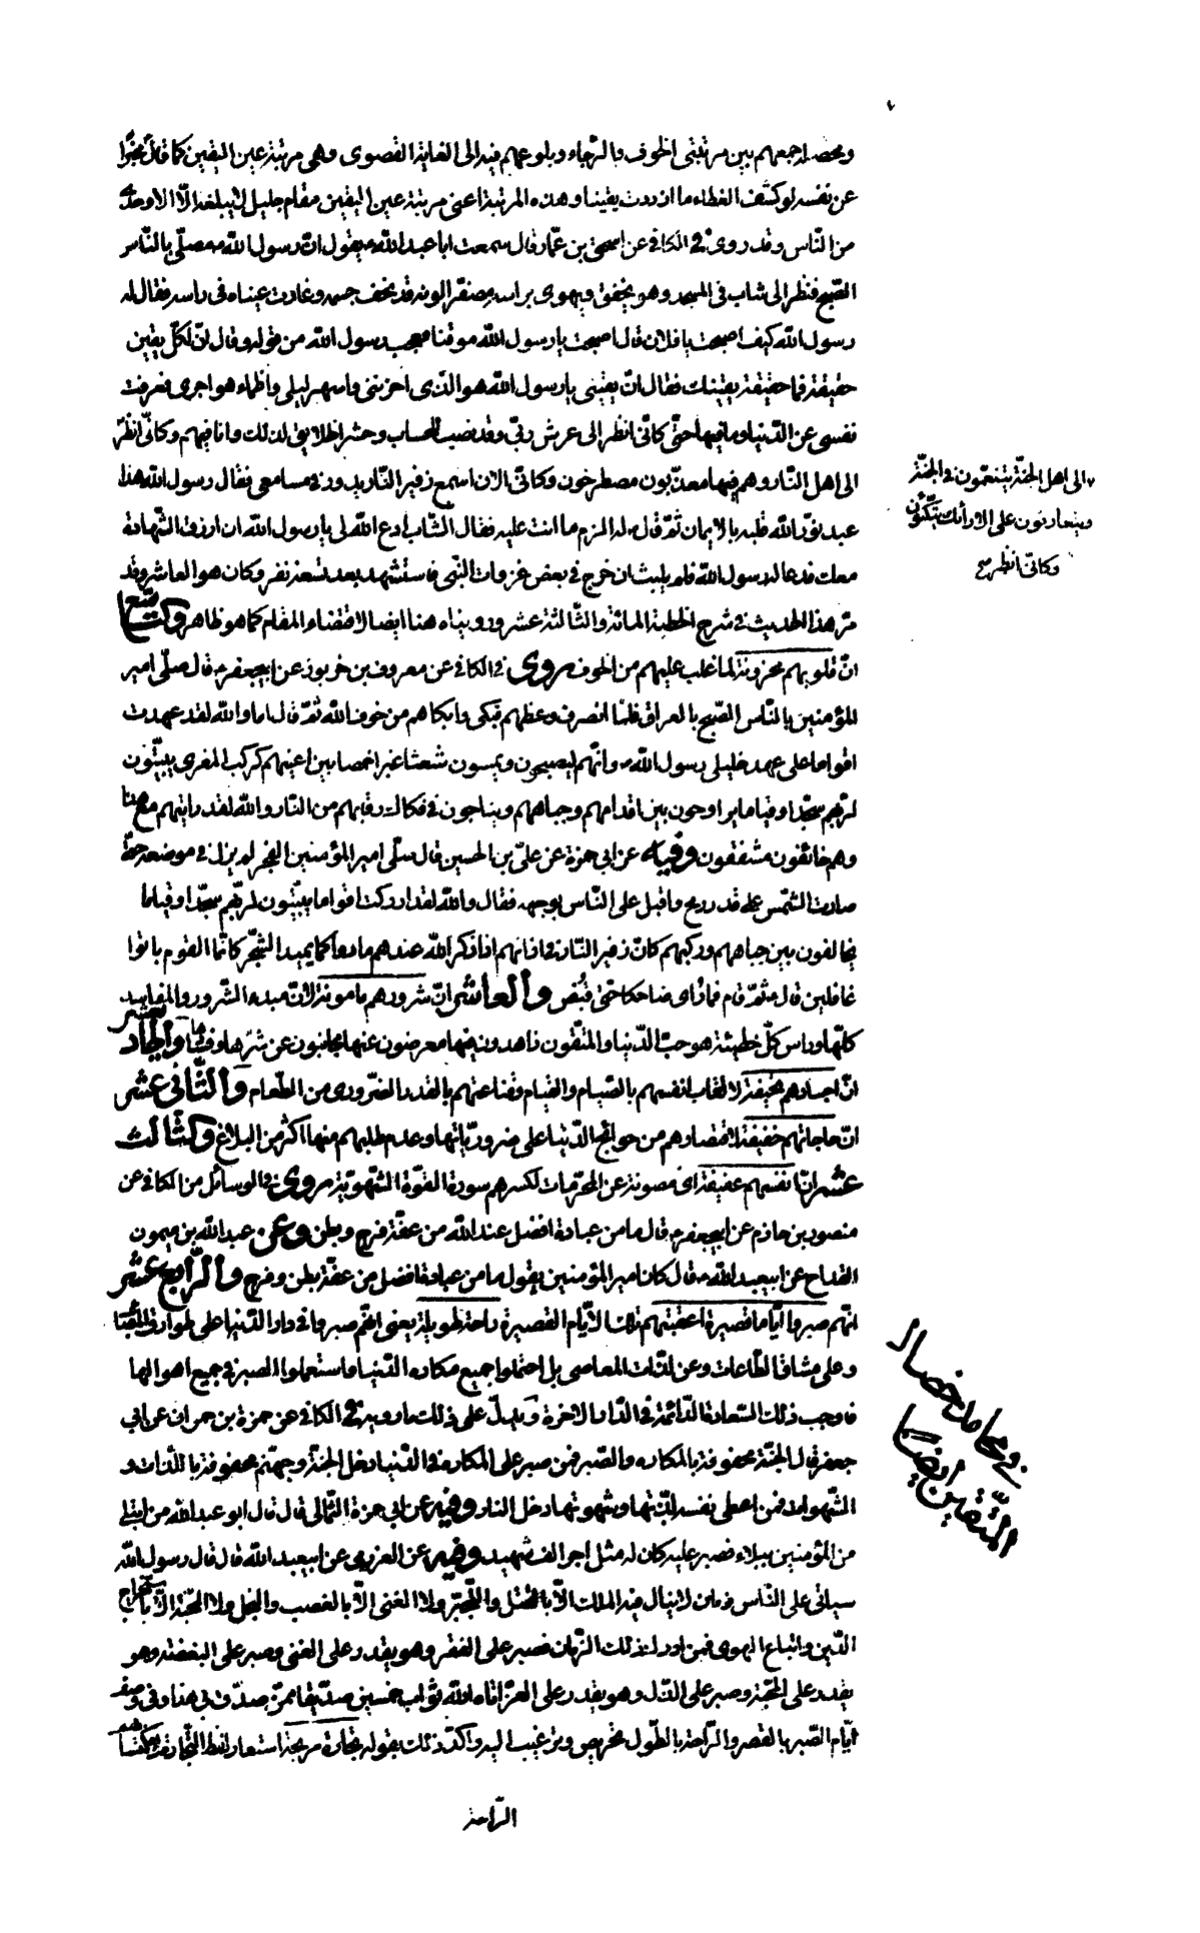 ومحصله جمعهم بين مرتبتى الخوف والرجاء وبلوغهم فيه الى الغاية القصوى وهى مرتبة عين اليقين كما قال مخبرا
عن نفسه لو كشف الغطاء ما ازددت يقينا وهذه المرتبة اعنى مرتبة عين اليقين مقام جليل لا يبلغه الا الاوحدى
من الناس وقد روى فى الكافى عن اسحق بن عمار قال سمعت ابا عبد الله يقول ان رسول الله صلى بالناس
الصبح فنظر الى شاب فى المسجد وهو يخفق ويهوى براسه مصفرا لونه قد نحف جسمه وغارت عيناه فى راسه فقال له
رسول الله كيف اصبحت يا فلان قال اصبحت يا رسول الله موقنا فعجب رسول الله من قوله وقال ان لكل يقين
حقيقة فما حقيقة يقينك فقال ان يقينى يا رسول الله هو الذى احزننى واسهر ليلى واظماء هواجرى فعزفت
نفسى عن الدنيا وما فيها حتى كانى انظر الى عرش ربى وقد نصب للحساب وحشر الخلايق لذلك وانا فيهم وكانى انظر
الى اهل الجنة يتنعمون فى الجنة
ويتعارفون على الارائك متكئون
وكانى انظر صح
الى اهل النار وهم فيها معذبون مصطرخون وكانى الان اسمع زفير النار يدور فى مسامعى فقال رسول الله هذا
عبد نور الله قلبه بالايمان ثم قال له الزم ما انت عليه فقال الشاب ادع الله لى يا رسول الله ان ارزق الشهادة
معك فدعا له رسول الله فلم يلبث ان خرج فى بعض غزوات النبى فاستشهد بعد تسعة نفر وكان هو العاشر وقد
مر هذا الحديث فى شرح الخطبة المائة والثالثة عشر ورويناه هنا ايضا لاقتضاء المقام كما هو ظاهر والتاسع
ان قلوبهم محزونة لما غلب عليهم من الخوف روى فى الكافى عن معروف بن خربوذ عن ابيجعفر قال صلى امير
المؤمنين بالناس الصبح بالعراق فلما انصرف وعظهم فبكى وابكاهم من خوف الله ثم قال اما والله لقد عهدت
اقواما على عهد خليلى رسول الله وانهم ليصبحون ويمسون شعثا غبرا خمصا بين اعينهم كركب المعزى يبيتون
لربهم سجدا وقياما يراوحون بين اقدامهم وجباههم ويناجون فى فكاك رقابهم من النار والله لقد رايتهم مع هذا
وهم خائفون مشفقون وفيه عن ابى حمزة عن على بن الحسين قال صلى امير المؤمنين الفجر لم يزل فى موضعه حتى
صارت الشمس على قدر رمح واقبل على الناس بوجهه فقال والله لقد ادركت اقواما يبيتون لربهم سجدا وقياما
يخالفون بين جباههم وركبهم كان زفير النار فى اذانهم اذا ذكر الله عندهم مادوا كما يميد الشجر كانما القوم باتوا
غافلين قال ثم قام فما رؤى ضاحكا حتى قبض والعاشر ان شرورهم مامونة لان مبدء الشرور والمفاسد
كلها وراس كل خطيئة هو حب الدنيا والمتقون زاهدون فيها معرضون عنها مجانبون عن شرها وفسادها والحاديعشر
ان اجسادهم نحيفة لاتعاب انفسهم بالصيام والقيام وقناعتهم بالقدر الضرورى من الطعام والثانى عشر
ان حاجاتهم خفيفة لاقتصارهم من حوائج الدنيا على ضرورياتها وعدم طلبهم منها اكثر من البلاغ والثالث
عشر ان انفسهم عفيفة اى مصونة عن المحرمات لكسرهم سورة القوة الشهوية روى فى الوسائل من الكافى عن
منصور بن حازم عن ابيجعفر قال ما من عبادة افضل عند الله من عفة فرج وبطن وعن عبد الله بن ميمون
القداح عن ابيعبد الله قال كان امير المؤمنين يقول ما من عبادة افضل من عفة بطن وفرج والرابع عشر
انهم صبروا اياما قصيرة اعقبتهم تلك الايام القصيرة راحة طويلة يعنى انهم صبروا فى دار الدنيا على طوارق المصائب
وعلى مشاق الطاعات وعن لذات المعاصى بل احتملوا جميع مكاره الدنيا واستعملوا الصبر فى جميع اهوالها
فاوجب ذلك السعادة الدائمة فى الدار الاخرة ويدل على ذلك ما رويه فى الكافى عن حمزة بن حمران عن ابى
جعفر قال الجنة محفوفة بالمكاره والصبر فمن صبر على المكاره فى الدنيا دخل الجنة وجهنم محفوفة باللذات و
الشهوات فمن اعطى نفسه لذتها وشهوتها دخل النار وفيه عن ابى حمزة الثمالى قال قال ابو عبد الله من ابتلى
من المؤمنين ببلاء فصبر عليه كان له مثل اجر الف شهيد وفيه عن العزرمى عن ابيعبد الله قال قال رسول الله
سياتى على الناس زمان لا ينال فيه الملك الا بالقتل والتجبر ولا الغنى الا بالغصب والبخل ولا المحبة الا باستخراج
الدين واتباع الهوى فمن ادرك ذلك الزمان فصبر على الفقر وهو يقدر على الغنى وصبر على البغضة وهو
يقدر على المحبة وصبر على الذل وهو يقدر على العز اتاه الله ثواب خمسين صديقا ممن صدق بى هذا وفى وصف
ايام الصبر بالقصر والراحة بالطول تحريص وترغيب اليه واكد ذلك بقوله تجارة مربحة استعار لفظ التجارة
فى محامد خصال
المتقين ايضا
الراحة